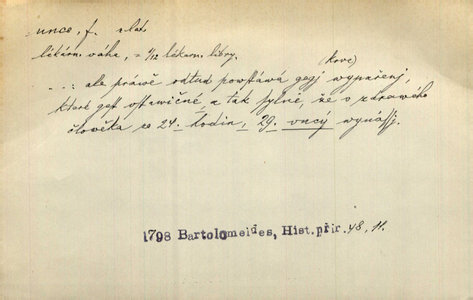 unce, f. z lat.
lékárn. váha, = 1/12 lékárn. libry.
(krve)
...: ale práwě odtud powstáwá gegj wypařenj,
které gest ustawičné, a tak sylné, že s zdrawého
člowěka se 24. hodin, 29. uncý wynássj.
1798 Bartolomeides, Hist. přir. 48, 11.